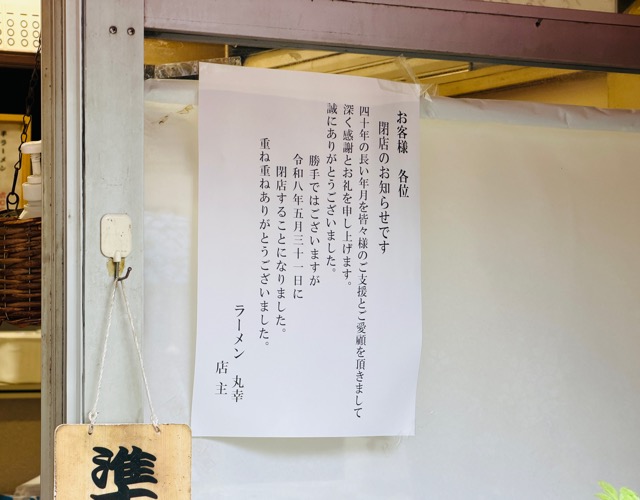 お客様　各位
閉店のお知らせです
四十年の長い年月を皆々様のご支援とご愛顧を頂きまして
深く感謝とお礼を申し上げます。
誠にありがとうございました。
勝手ではございますが
令和八年五月三十一日に
閉店することになりました。
重ね重ねありがとうございました。
ラーメン　丸幸
店　主
準